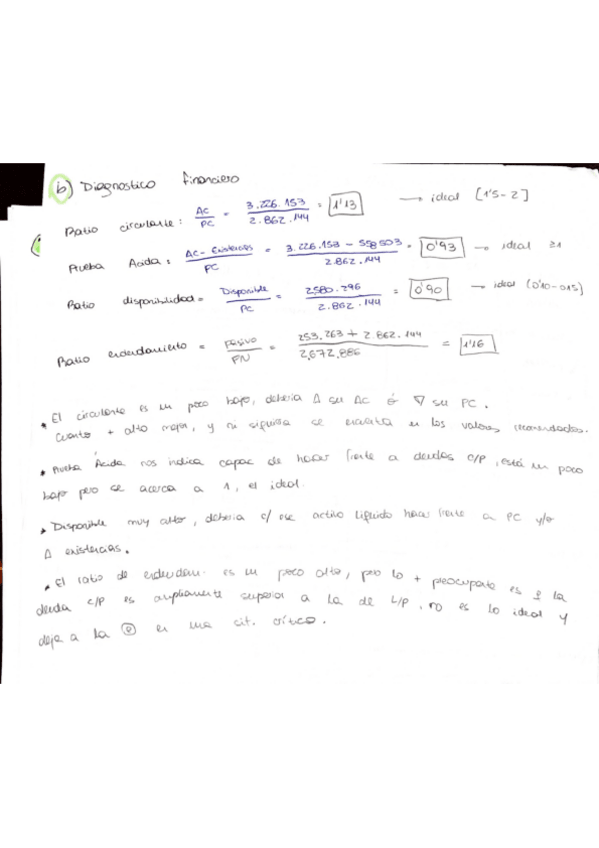 b) Diagnostico financiero
Ratio circulante: AC / PC = 3.226.153 / 2.862.144 = 1'13 → ideal [1'5-2]
Prueba Acida: AC - Existencias / PC = 3.226.153 - 558503 / 2.862.144 = 0'93 → ideal ≥1
Ratio disponibilidad = Disponible / PC = 2580.296 / 2.862.144 = 0'90 → ideal (0'10-015]
Ratio endeudamiento = pasivo / PN = 253.263 + 2.862.144 / 2,672.886 = 1'16
* El circulante es un poco bajo, deberia Δ su AC ó ∇ su PC.
Cuanto + alto mejor, y ni siquiera se encuentra en los valores recomendados.
* Prueba Ácida nos indica capac de hacer frente a deudas c/p, está un poco
bajo pero se acerca a 1, el ideal.
* Disponible muy alto, deberia c/ ese activo líquido hacer frente a PC y/o
Δ existencias.
* El ratio de endeudam. es un poco alto, pero lo + preocupante es q la
deuda c/p es ampliamente superior a la de L/p, no es lo ideal y
deja a la e en una sit. crítica.